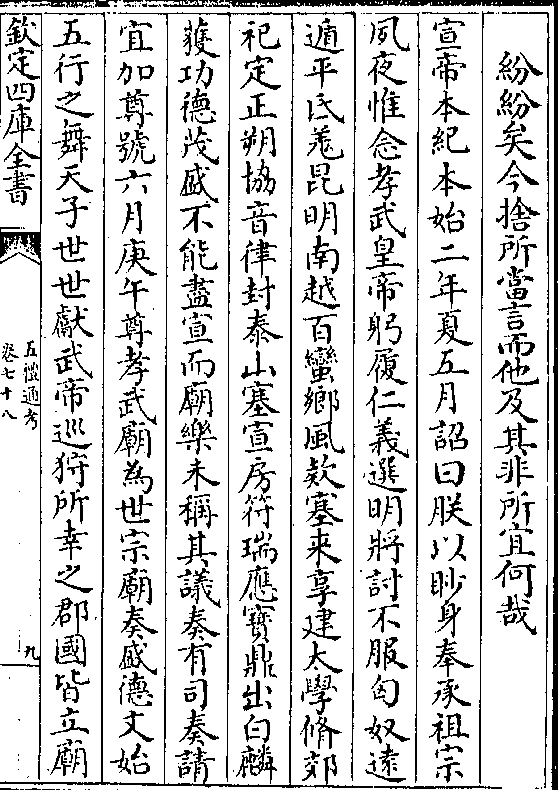 紛紛矣今捨所當言而他及其非所宜何哉
宣帝本紀本始二年夏五月詔曰朕以眇身奉承祖宗
夙夜惟念孝武皇帝躬履仁義選明將討不服匈奴遠
遁平氐羗昆明南越百蠻鄉風欵塞來享建太學脩郊
祀定正朔協音律封泰山塞宣房符瑞應寳鼎出白麟
獲功德茂盛不能盡宣而廟樂未稱其議奏有司奏請
宜加尊號六月庚午尊孝武廟為世宗廟奏盛德文始
五行之舞天子世世獻武帝巡狩所幸之郡國皆立廟
欽定四庫全書
五禮通考
卷七十八
九